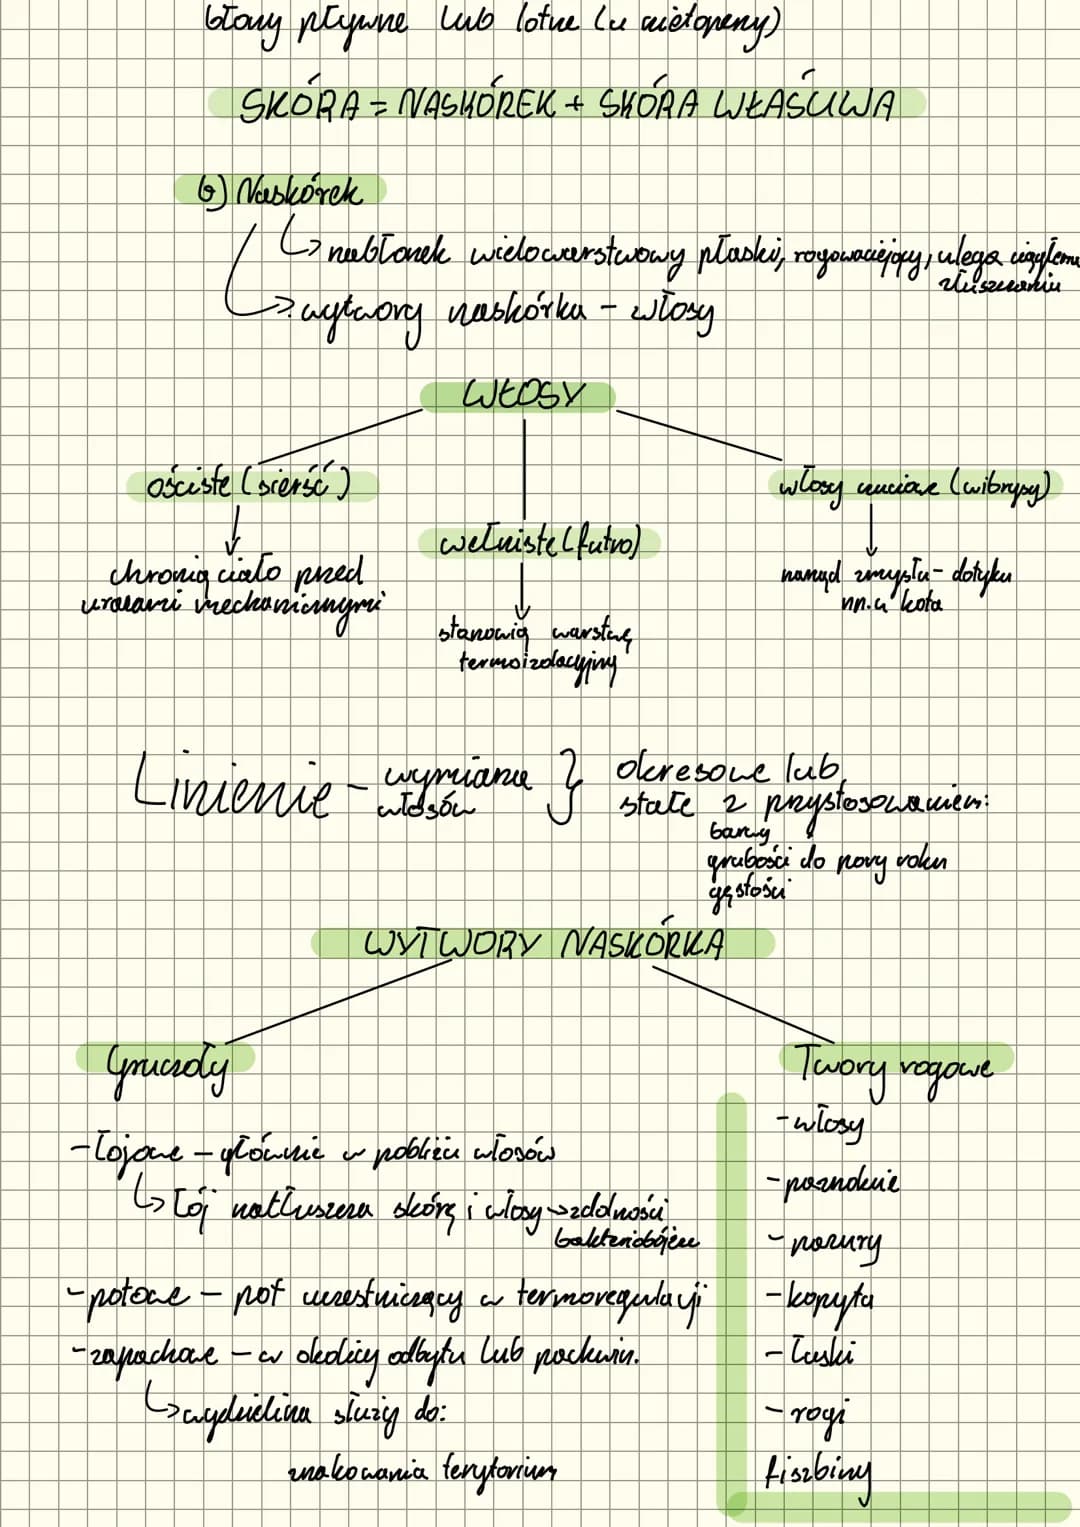 błony pływne lub lotne (u nietoperzy)
SKÓRA = NASKÓREK + SKÓRA WŁAŚCIWA
b) Naskórek
↳ nabłonek wielowarstwowy płaski, rogowaciejący, ulega ciągłemu
złuszczaniu
↳ wytwory naskórka - włosy
WŁOSY
ościste (sierść)
włosy czuciowe (wibrysy)
wełniste (futro)
chronią ciało przed
urazami mechanicznymi
narząd zmysłu - dotyku
np. u kota
stanowią warstwę
termoizolacyjną
Linienie - wymiana
włosów
} okresowe lub
stałe z przystosowaniem:
barwy
grubości do pory roku
gęstości
WYTWORY NASKÓRKA
Gruczoły
Twory rogowe
- łojowe - głównie w pobliżu włosów
↳ łój natłuszcza skórę i włosy → zdolności
bakteriobójcze
- potowe - pot uczestniczący w termoregulacji
- zapachowe - w okolicy odbytu lub pachwin.
↳ wydzielina służy do:
znakowania terytorium
- włosy
- paznokcie
- pazury
- kopyta
- łuski
- rogi
fiszbiny